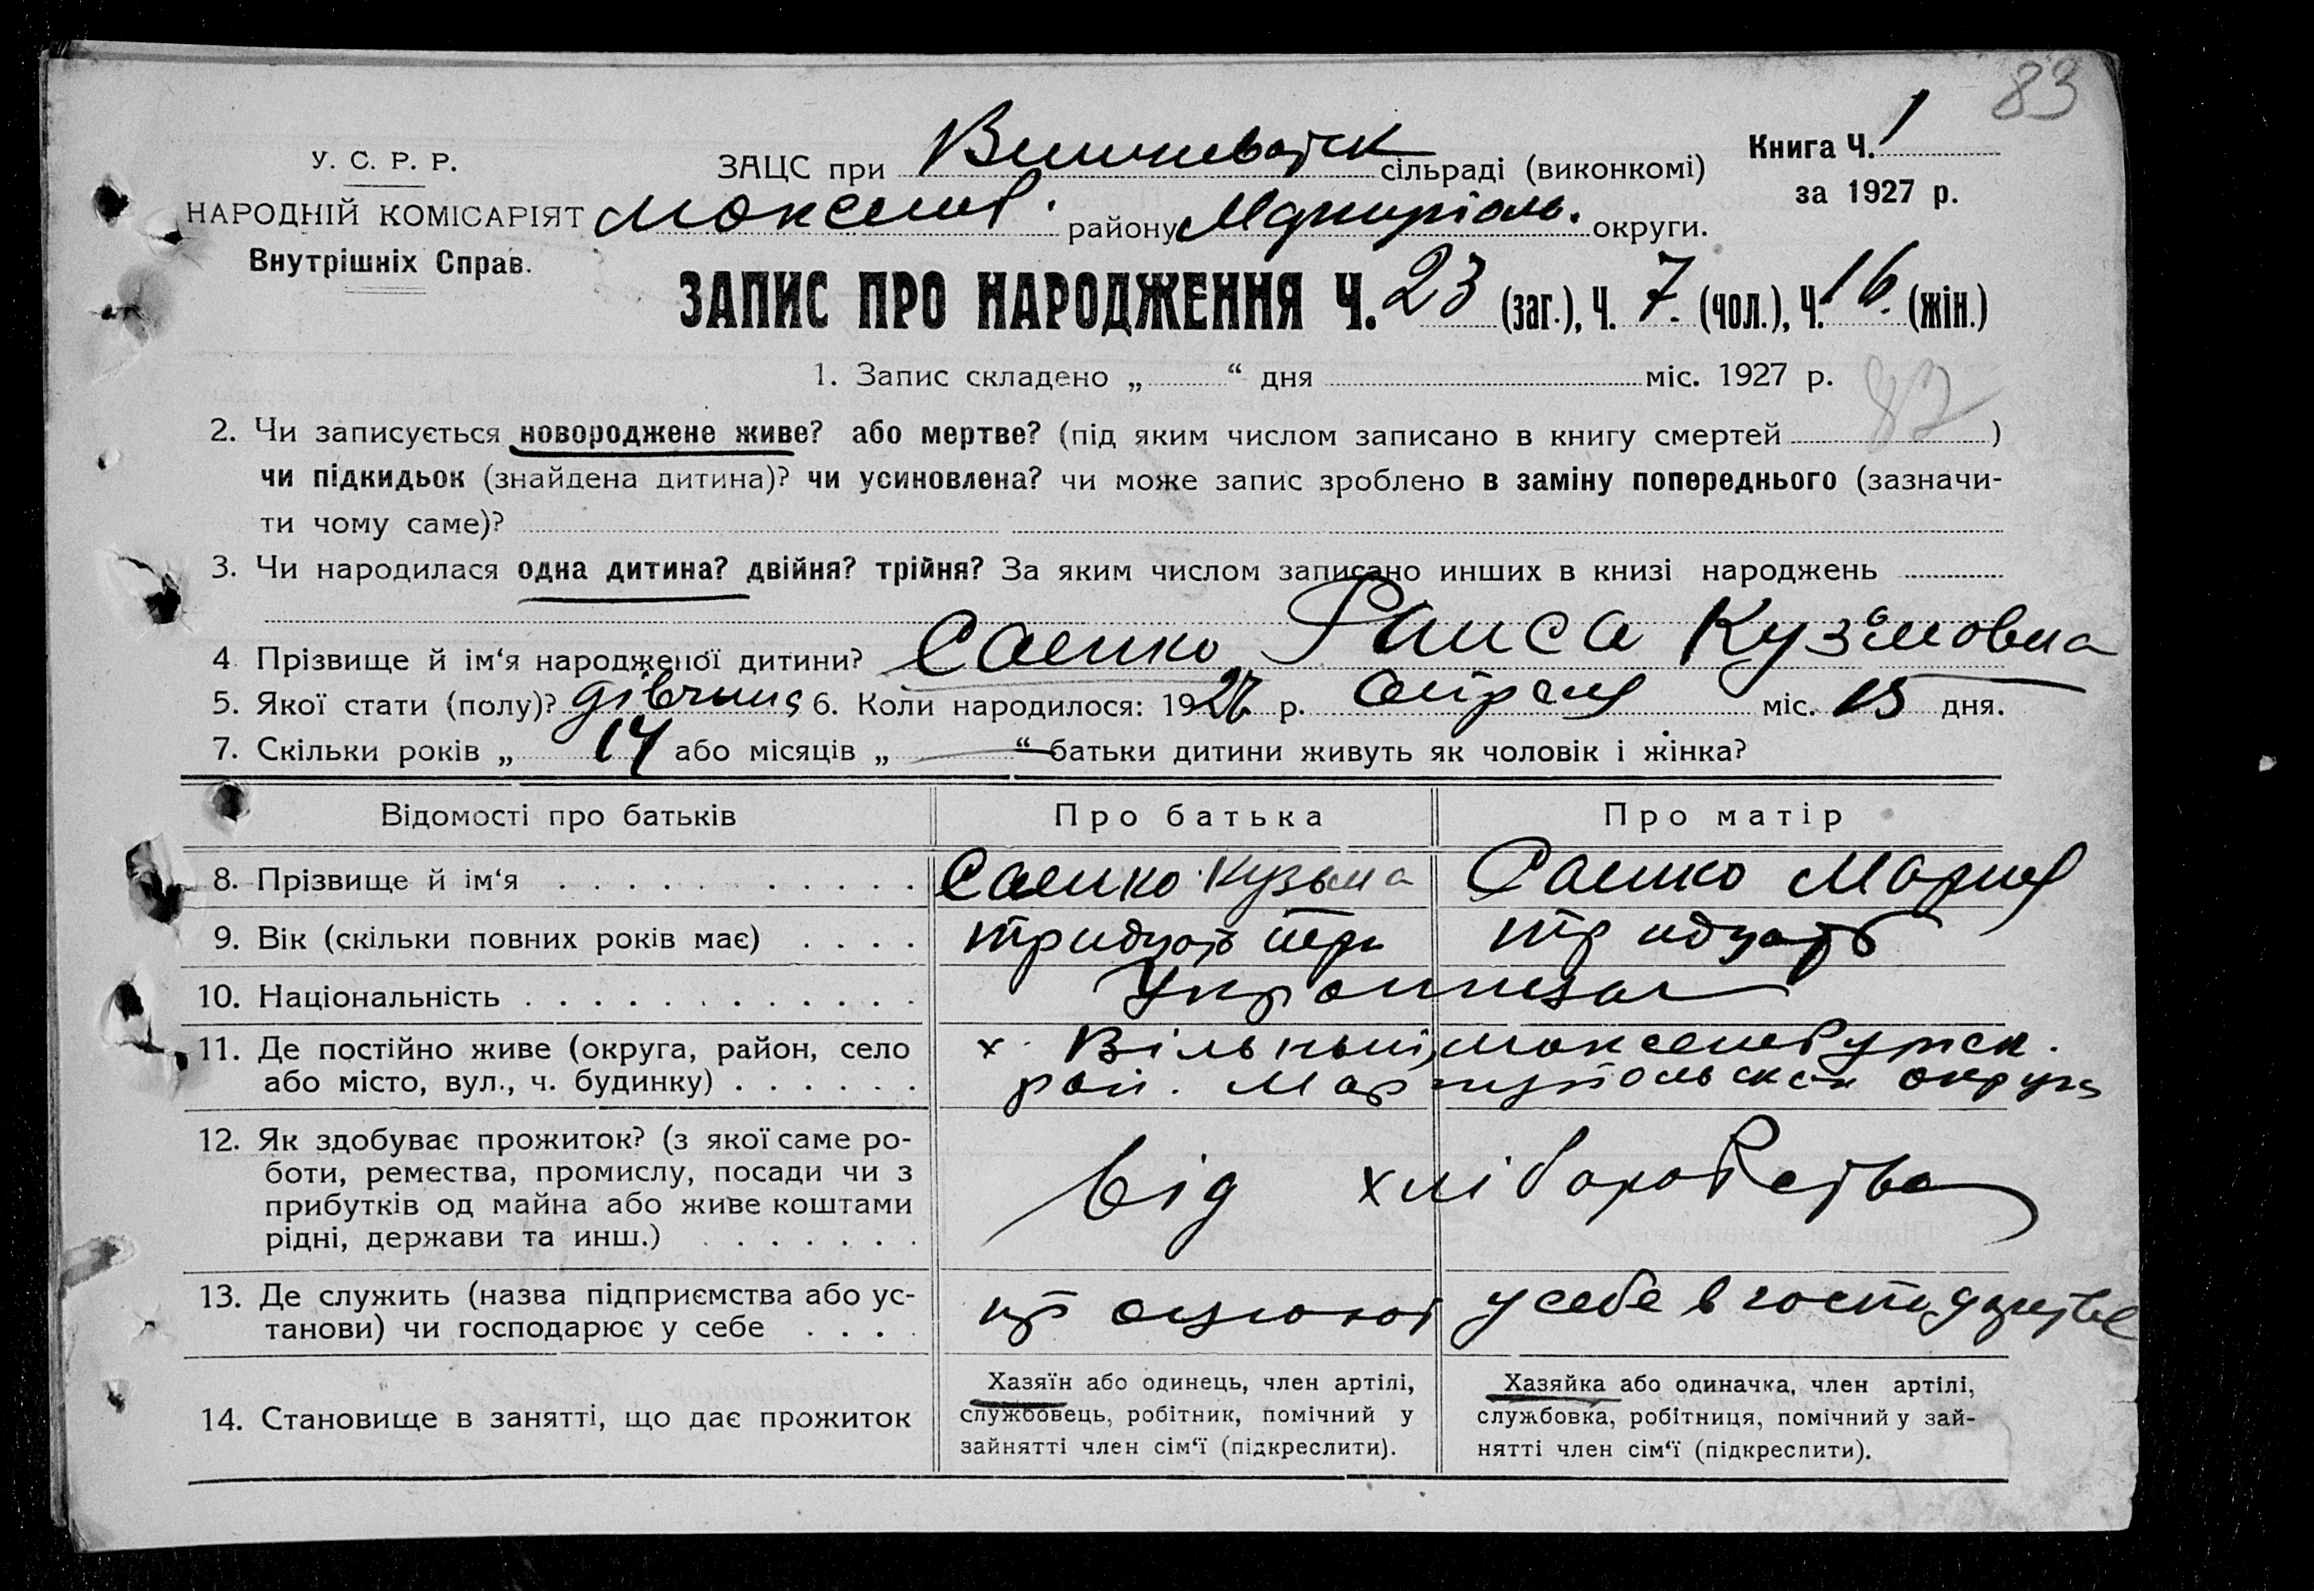 83
У. С. Р. Р.
НАРОДНІЙ КОМІСАРІЯТ
Внутрішніх Справ.
ЗАЦС при сільраді (виконкомі)
района Маріупіль. округи.
Книга Ч. 1
за 1927 р.
ЗАПИС ПРО НАРОДЖЕННЯ Ч. 23 (заг.), Ч. 7 (чол.), Ч. 16 (жін.)
1. Запис складено „ “ дня міс. 1927 р.
82
2. Чи записується новороджене живе? або мертве? (під яким числом записано в книгу смертей )
чи підкидьок (знайдена дитина)? чи усиновлена? чи може запис зроблено в заміну попереднього (зазначи-
ти чому саме)?
3. Чи народилася одна дитина? двійня? трійня? За яким числом записано инших в книзі народжень
4 Прізвище й ім‘я народженої дитини? Саенко Раиса Кузьмовна
5. Якої стати (полу)? 6. Коли народилося: 1927 р. Апреля міс. 15 дня.
7. Скільки років „ 14 або місяців „ — “ батьки дитини живуть як чоловік і жінка?
Відомості про батьків Про батька Про матір
8. Прізвище й ім‘я Саенко Кузьма Саенко Мария
9. Вік (скільки повних років має) тридцать три тридцать
10. Національність
11. Де постійно живе (округа, район, село х. Вільный,
або місто, вул., ч. будинку) рай. Мариупольской округи
12. Як здобуває прожиток? (з якої саме ро-
боти, ремества, промислу, посади чи з
прибутків од майна або живе коштами
рідні, держави та инш.) від хліборобства
13. Де служить (назва підприємства або ус-
танови) чи господарює у себе у себе в господарстве
14. Становище в занятті, що дає прожиток
Хазяїн або одинець, член артілі,
службовець, робітник, помічний у
зайнятті член сім‘ї (підкреслити).
Хазяйка або одиначка, член артілі,
службовка, робітниця, помічний у зай-
нятті член сім‘ї (підкреслити).